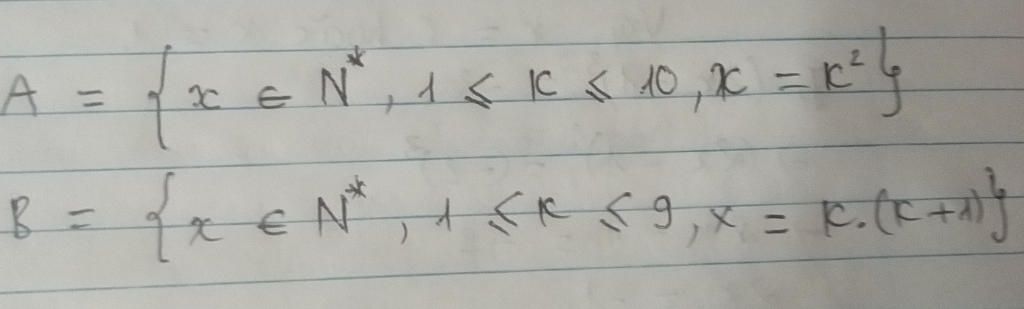 A = { x ∈ N*, 1 ⩽ k ⩽ 10, x = k² }
B = { x ∈ N*, 1 ⩽ k ⩽ 9, x = k.(k+1) }